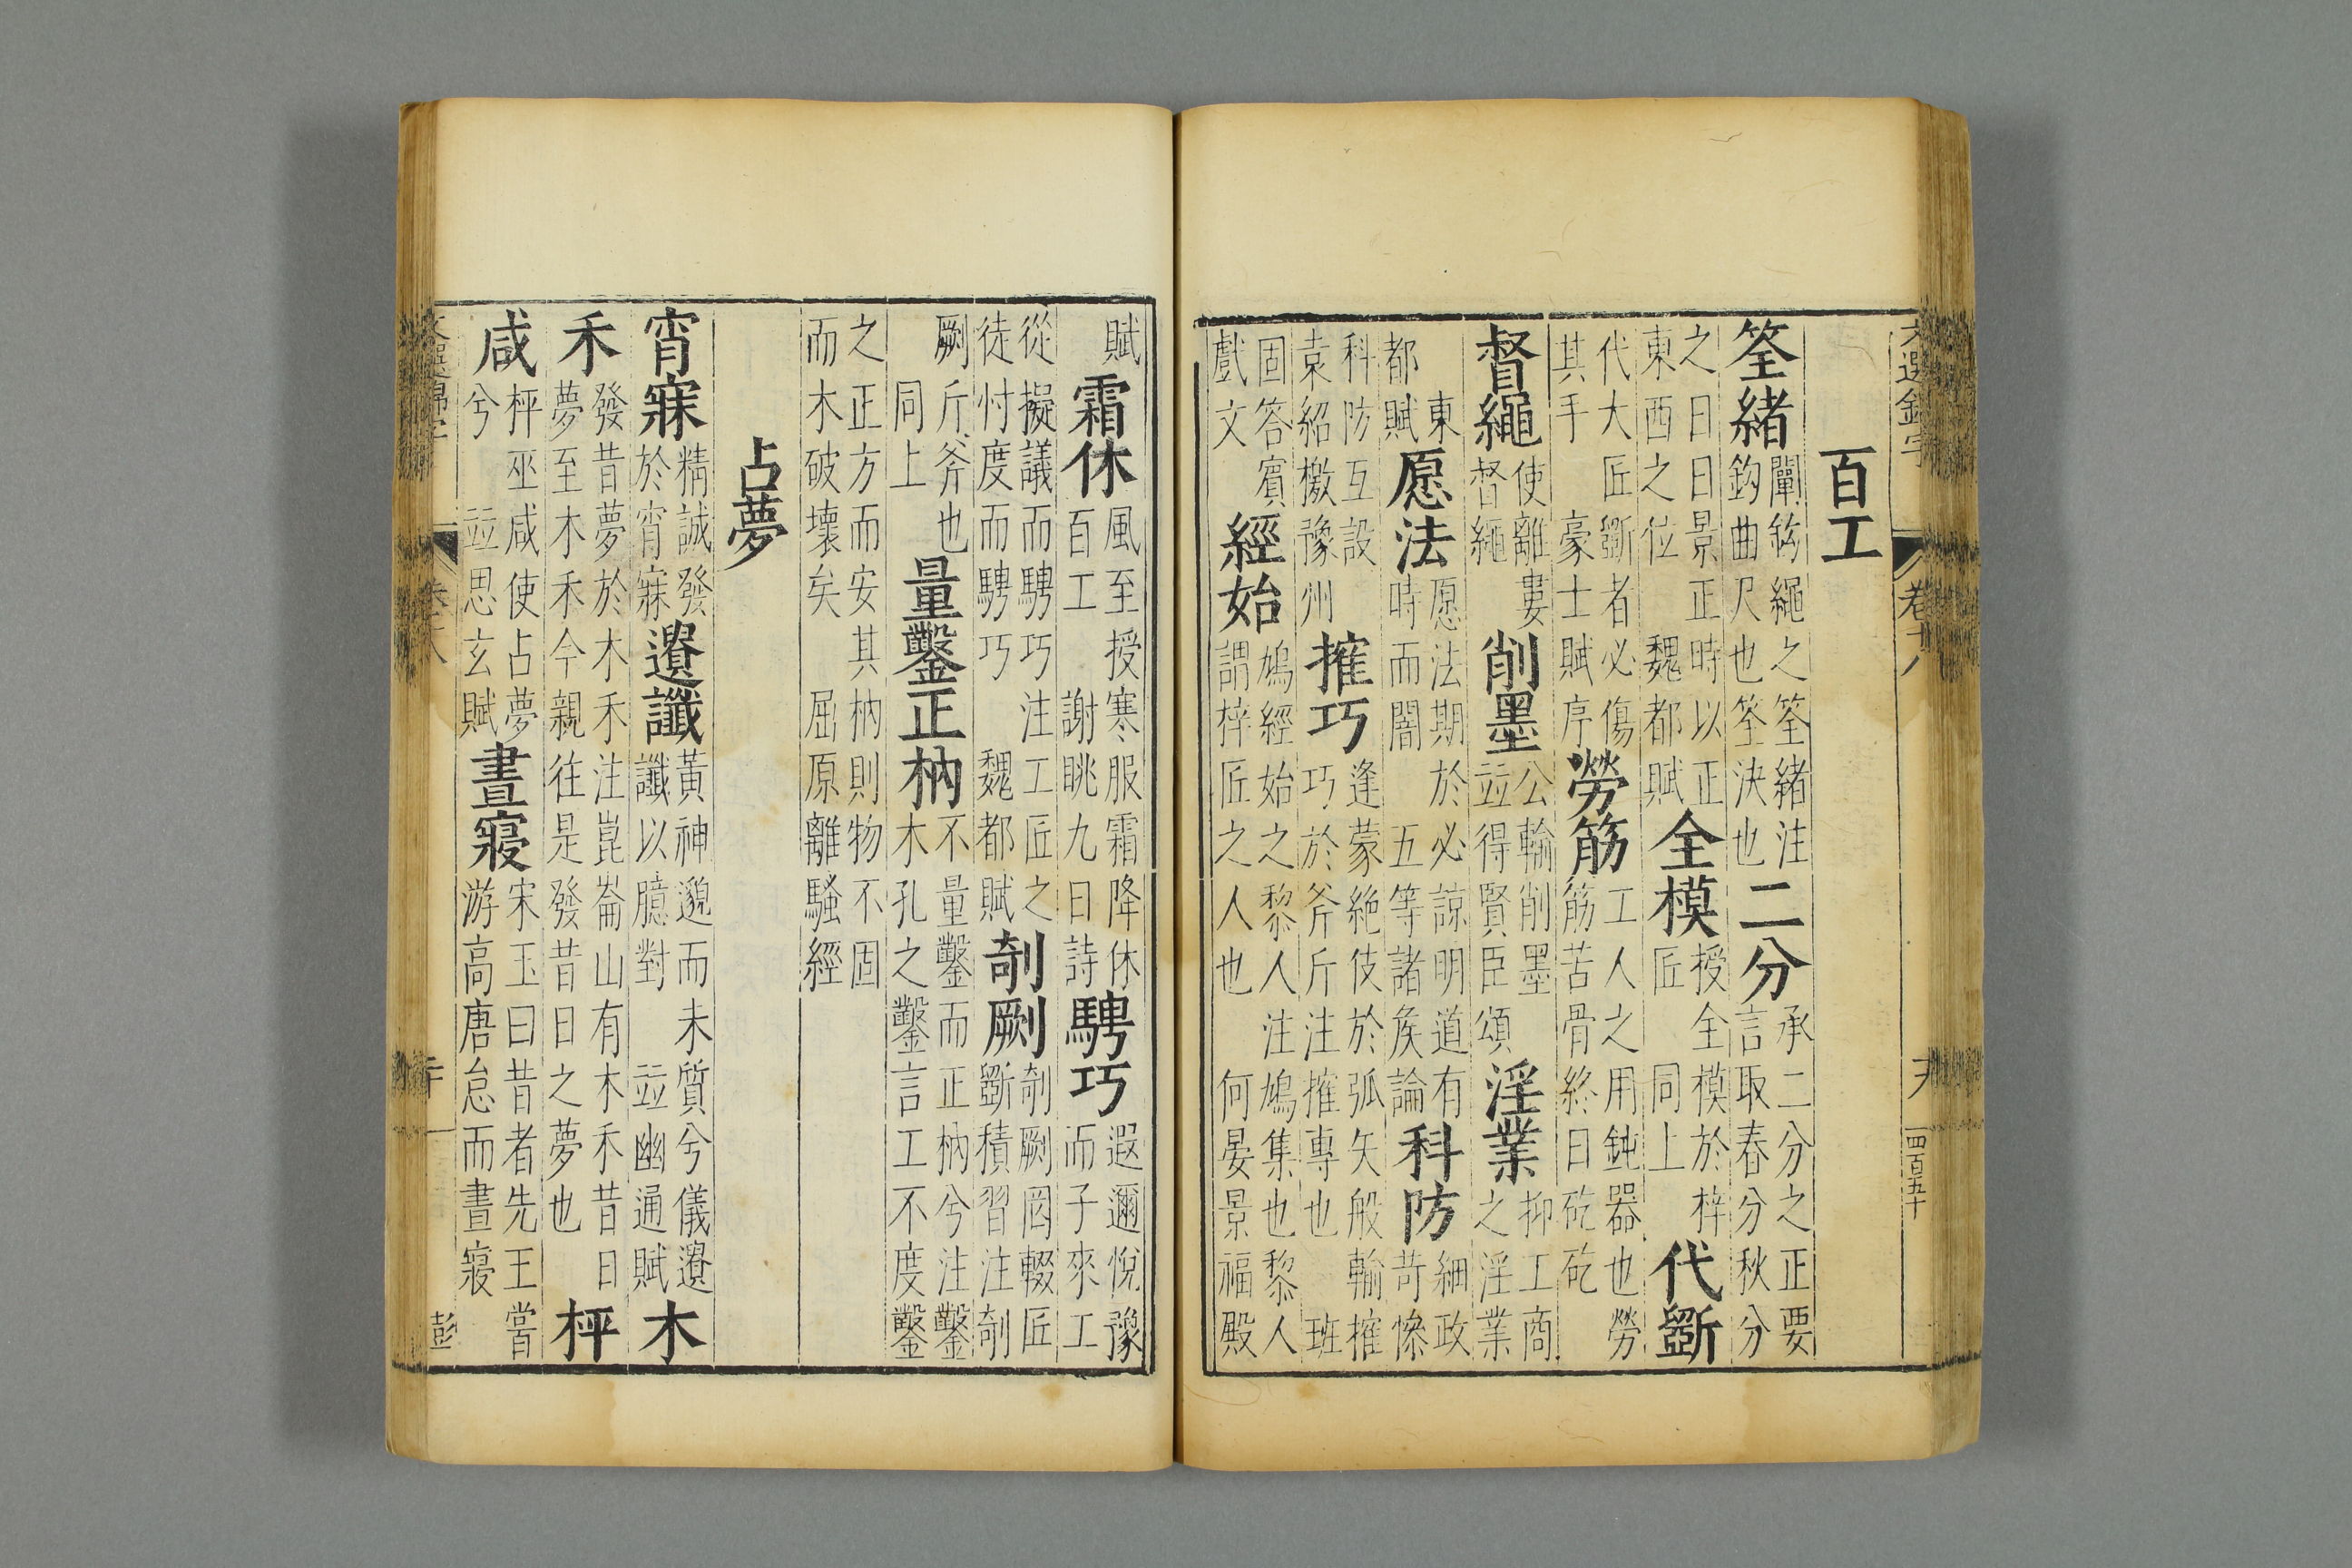 文選錦字 卷十八 九 四百五十
百工
筌緒闡鉤繩之筌緒注鈎曲尺也筌決也二分承二分之正要言取春分秋分
之日日景正時以正東西之位 魏都賦全模授全模於梓匠 同上代斵
代大匠斵者必傷其手 豪士賦序勞筋工人之用鈍器也勞筋苦骨終日矻矻
督繩使離婁督繩削墨公輸削墨並得賢臣頌淫業抑工商之淫業
東都賦愿法愿法期於必諒明道有時而闇 五等諸侯論科防細政苛慘
科防互設袁紹檄豫州搉巧逢蒙絶伎於弧矢般輸搉巧於斧斤注搉專也 班
固答賓戲文經始鳩經始之黎人注鳩集也黎人謂梓匠之人也 何晏景福殿
賦霜休風至授寒服霜降休百工 謝眺九日詩騁巧遐邇悅豫而子來工
從擬議而騁巧注工匠之徒忖度而騁巧 魏都賦剞劂剞劂罔輟匠斵積習注剞
劂斤斧也同上量鑿正枘不量鑿而正枘兮注鑿木孔之鑿言工不度鑿
之正方而安其枘則物不固而木破壞矣 屈原離騷經
占夢
宵寐精誠發於宵寐遺讖黃神邈而未質兮儀遺讖以臆對 並幽通賦木
禾發昔夢於木禾注崑崙山有木禾昔日夢至木禾今親往是發昔日之夢也枰
咸枰巫咸使占夢兮 並思玄賦晝寢宋玉曰昔者先王嘗游高唐怠而晝寢
文選錦字 卷十八 二十 彭